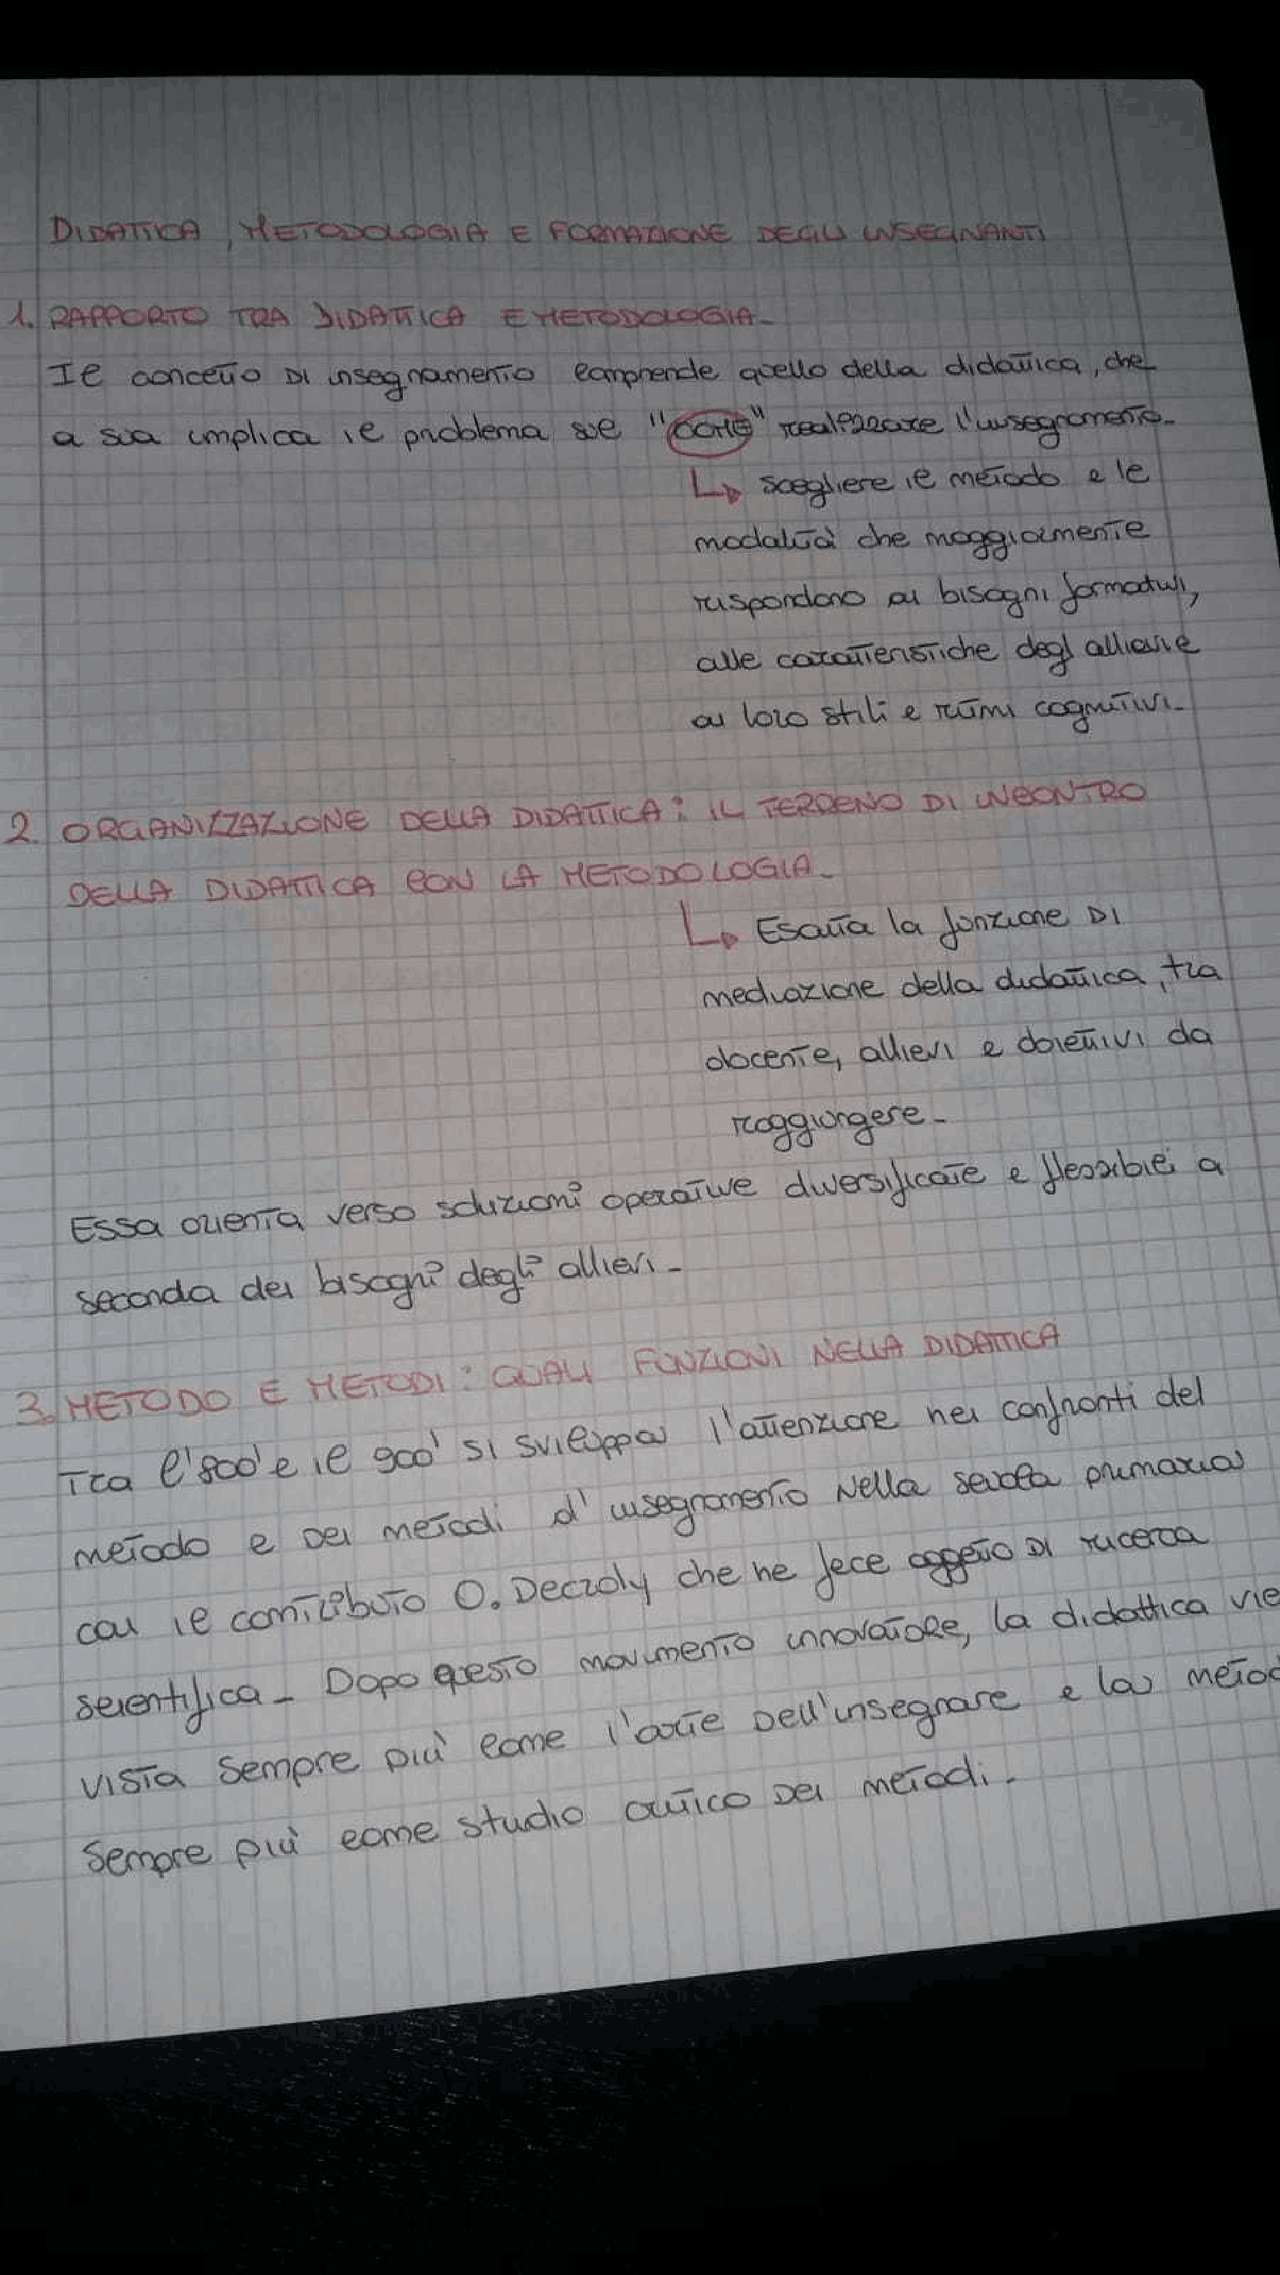 DIDATTICA, METODOLOGIA E FORMAZIONE DEGLI INSEGNANTI
1. RAPPORTO TRA DIDATTICA E METODOLOGIA-
Il concetto di insegnamento comprende quello della didattica, che
a sua implica il problema sul "COME" realizzare l'insegnamento-
↳ scegliere il metodo e le
modalità che maggiormente
rispondono ai bisogni formativi,
alle caratteristiche degl allievi e
ai loro stili e ritmi cognitivi-
2. ORGANIZZAZIONE DELLA DIDATTICA: IL TERRENO DI INCONTRO
DELLA DIDATTICA CON LA METODOLOGIA-
↳ Esalta la funzione di
mediazione della didattica, tra
docente, allievi e obiettivi da
raggiungere-
Essa orienta verso soluzioni operative diversificate e flessibili a
seconda dei bisogni degli allievi-
3. METODO E METODI: QUALI FUNZIONI NELLA DIDATTICA
Tra l'800' e il 900' si sviluppa l'attenzione nei confronti del
metodo e dei metodi d'insegnamento nella scuola primaria
con il contributo O. Decroly che ne fece oggetto di ricerca
scientifica- Dopo questo movimento innovatore, la didattica vie
vista sempre più come l'arte dell'insegnare e la metod
sempre più come studio critico dei metodi-